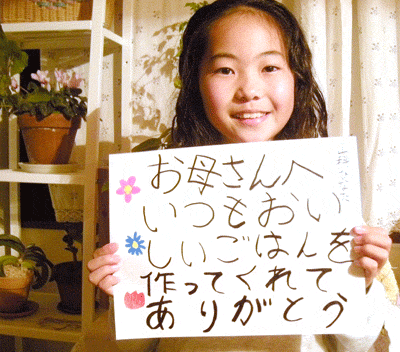 お母さんへ
いつもおい
しいごはんを
作ってくれて
ありがとう